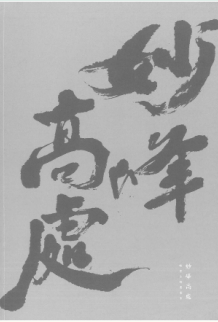 妙峰
高處
妙峰高處